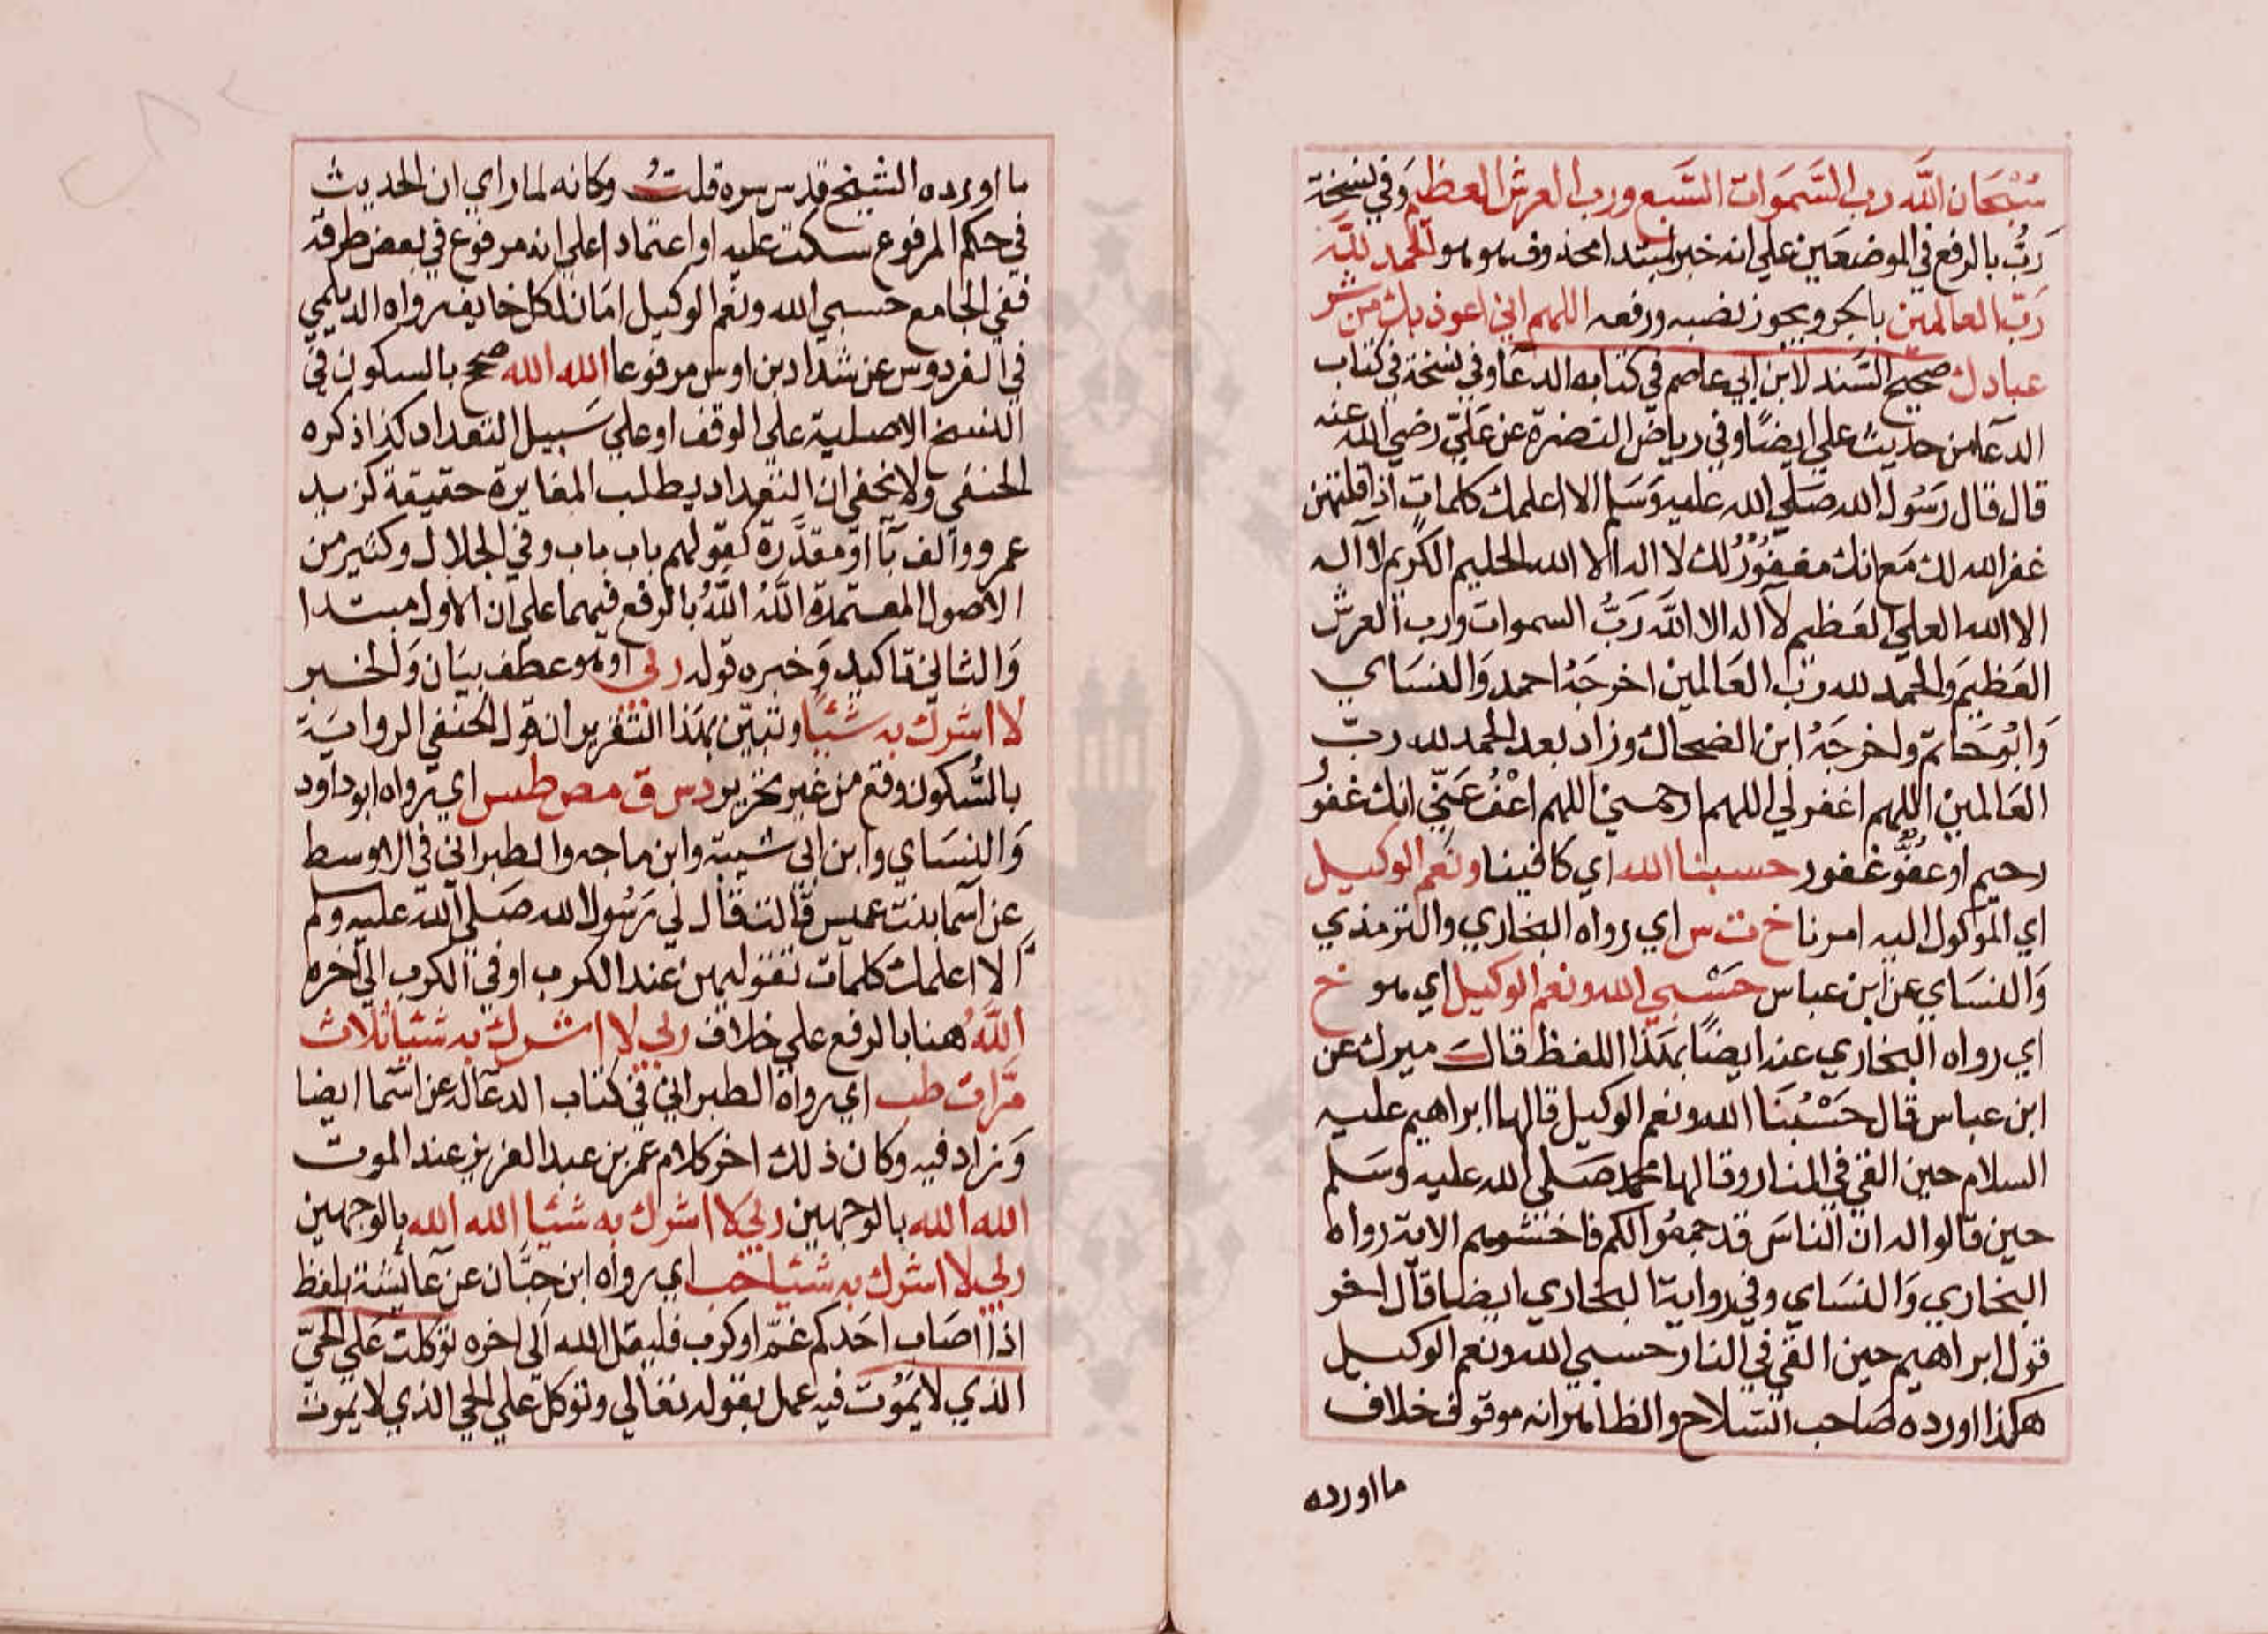 سُبْحَان اللَّه رب السَّمَوات السَّبع ورب العرش العظيم وَفي نسخة
رَبُّ بالرفع في الموضعَين علي انه خبر لمبتدا محذوف هو هو الحمد للَّه
رَبّ العالمين بالجر ويجوز نصبه ورفعه اللهم اني اعوذ بك من شر
عبادك صحيح السَّند لابن ابي عاصم في كتابه الدعا وفي نسخة في كتاب
الدعا من حديث علي ايضًا وفي رياض النضرة عن عَليّ رضي الله عنه
قال قال رَسُول الله صَلي الله عليه وَسَلم الا اعلمك كلمات اذا قلتهن
غفر الله لك مَع انك مغفوْرُ لك لا اله الا الله الحليم الكريم لا اله
الا الله العلي العَظيم لا اله الا اللَّه رَبُّ السموات ورب العرش
العَظيم وَالحمد لله رَبّ العَالمين اخرجَهُ احمد وَالنسَاي
وَابُو حَاتم واخرجَهُ ابن الضحاك وزاد بعد الحمد لله ربّ
العَالمين اللهم اغفر لي اللهم ارحمني اللهم اعْفُ عَنّي انك غفوُ
رحيم او عفوّ غفور حسبنا الله اي كافينا ونَعم الوكيل
اي الموكول اليه امرنا خ ت س اي رواه البخاري والترمذي
وَالنسَاي عن ابن عباس حَسْبي الله ونعم الوكيل اي هو خ
اي رواه البخاري عنه ايضًا بهَذا اللفظ قالَ ميرك عن
ابن عباس قال حَسْبُنَا الله ونعم الوكيل قالها ابراهيم عليه
السلام حين القي في النار وقالها محمد صَلي الله عليه وسَلم
حين قالوا له ان الناسَ قد جمعُوا لكم فاخشوهم الاية رواه
البخاري وَالنسَاي وفي رواية البخاري ايضا قال اخر
قول ابراهيم حين القي في النار حسبي الله ونعم الوكيل
هكذا اورده صَاحب السّلاح والظاهر انه موقوف خلاف
ما اورده
ما اورده الشيخ قدس سره قلتُ وكانه لما راي ان الحديث
في حكم المرفوع سكت عليه او اعتمادا علي انه مرفوع في بعض طرقه
ففي الجامع حسبي الله ونعم الوكيل امَان لكل خايف رواه الديلمي
في الفردوس عن شداد بن اوس مرفوعا الله الله صح بالسكون في
النسخ الاصلية علي الوقف او علي سَبيل التعداد كذا ذكره
الحنفي ولا يخفي ان التعداد يطلب المغايرة حقيقة كزيد
عمرو والف با او مقدَّرة كقولهم باب باب وفي الجلال وكثير من
الاصول المعتمدة اللَّهُ اللَّهُ بالرفع فيهما علي ان الاول مبتدا
وَالثاني تاكيد وَخبره قوله ربي او هو عطف بيَان وَالخبر
لا اشرك به شيًا وتبيّن بهَذا التقرير ان قول الحنفي الرواية
بالسُّكون وقع من غير تحرير د س ق مص طس اي رواه ابو داود
وَالنسَاي وابن ابي شيبة وابن ماجه والطبراني في الاوسط
عن اسما بنت عميس قالت قال لي رَسُول الله صَلي الله عليه وسلم
الا اعلمك كلمات تقوليهن عند الكرب او في الكرب الي اخره
اللَّهُ هنا بالرفع علي خلاف ربي لا اشرك به شيئا ثلاث
مَرَّات طب اي رواه الطبراني في كتاب الدعا له عن اسَما ايضا
وَزاد فيه وكان ذلك اخر كلام عمر بن عبد العزيز عند الموت
الله الله بالوجهين ربي لا اشرك به شيئا الله الله بالوجهين
ربي لا اشرك به شيئا حب اي رواه ابن حبَّان عن عَائشة بلفظ
اذا اصَاب احَدكم غمّ او كرب فليقل الله الي اخره توكلت عَلي الحيّ
الذي لا يَمُوت فيه عمل بقوله تعالي وتوكل علي الحي الذي لا يموت